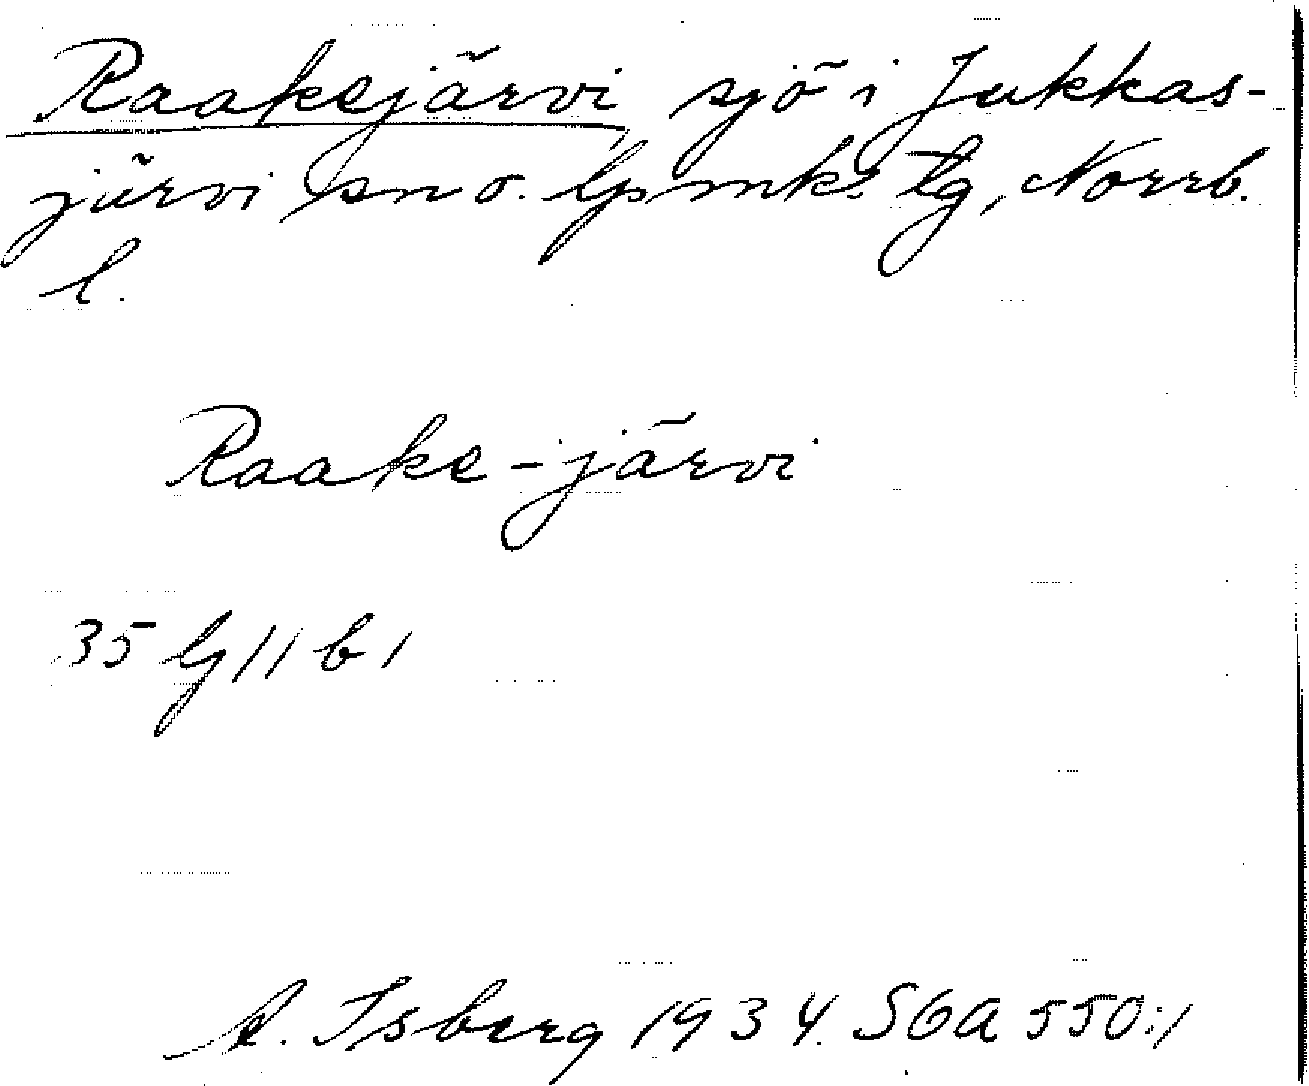 Raakejärvi, sjö i Jukkas-
järvi sn o. lpmks tg, Norrb.
l.
Raake-järvi
35 lg 11 b 1
A. Isberg 1934. SGA 550:1